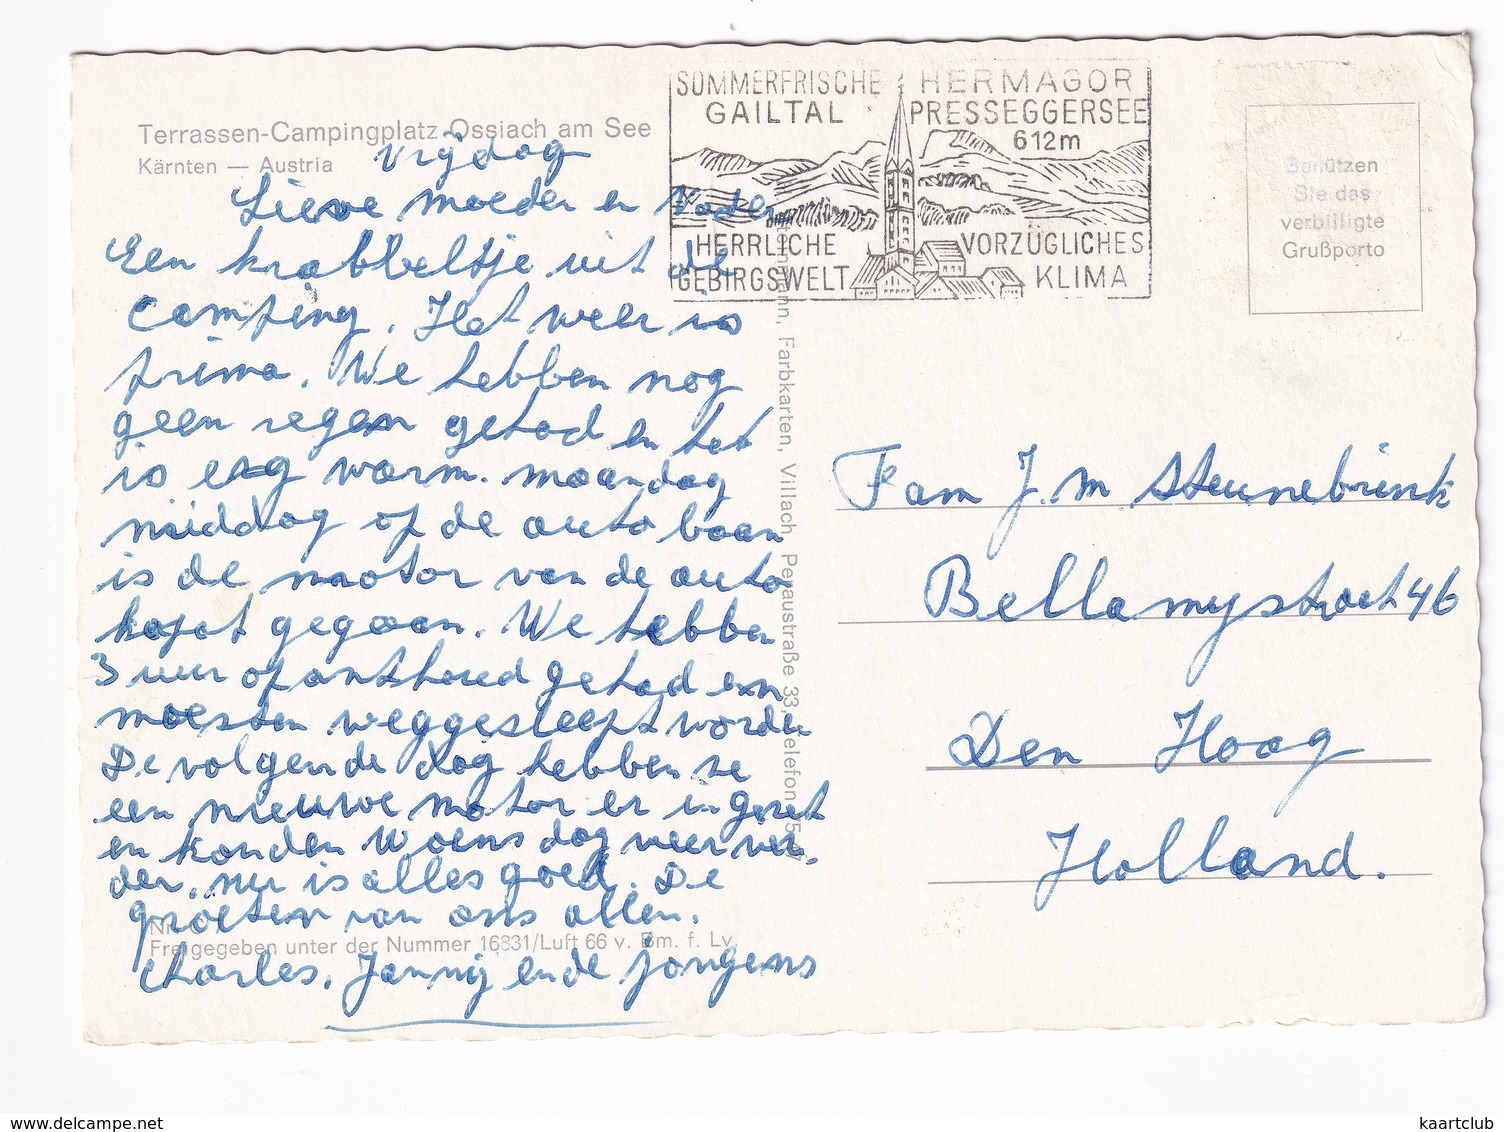 Terrassen-Campingplatz Ossiach am See
Kärnten — Austria
Vrijdag
Lieve moeder en Vader
Een krabbeltje uit de
camping. Het weer is
prima. We hebben nog
geen regen gehad en het
is erg warm. maandag
middag op de auto baan
is de motor van de auto
kapot gegaan. We hebben
3 uur oponthoud gehad en
moesten weggesleept worden
De volgende dag hebben ze
een nieuwe motor er in gezet
en konden Woensdag weer ver-
der. nu is alles goed. De
groeten van ons allen.
Nr.
Freigegeben unter der Nummer 16831/Luft 66 v. Bm. f. Lv.
Charles, Janny en de jongens
SOMMERFRISCHE HERMAGOR
GAILTAL PRESSEGGERSEE
612m
HERRLICHE VORZÜGLICHES
GEBIRGSWELT KLIMA
Farbkarten, Villach Peraustraße 33, Telefon
Benützen
Sie das
verbilligte
Grußporto
Fam J. M Steunebrink
Bellamystraat 46
Den Haag
Holland.
www.delcampe.net
kaartclub